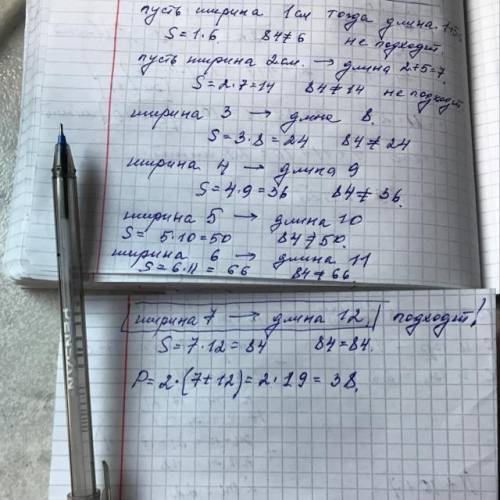 пусть ширина 1 см тогда длина 1+5
S = 1·6. 84≠6 не подходит
пусть ширина 2 см. → длина 2+5=7.
S = 2·7=14 84≠14 не подходит
ширина 3 → длина 8.
S = 3·8 = 24 84≠24
ширина 4 → длина 9
S = 4·9 = 36 84≠36.
ширина 5 → длина 10
S = 5·10 = 50 84≠50.
ширина 6 → длина 11
S = 6·11 = 66 84≠66
ширина 7 → длина 12. подходит!
S = 7·12 = 84 84=84.
P = 2·(7+12) = 2·19 = 38.